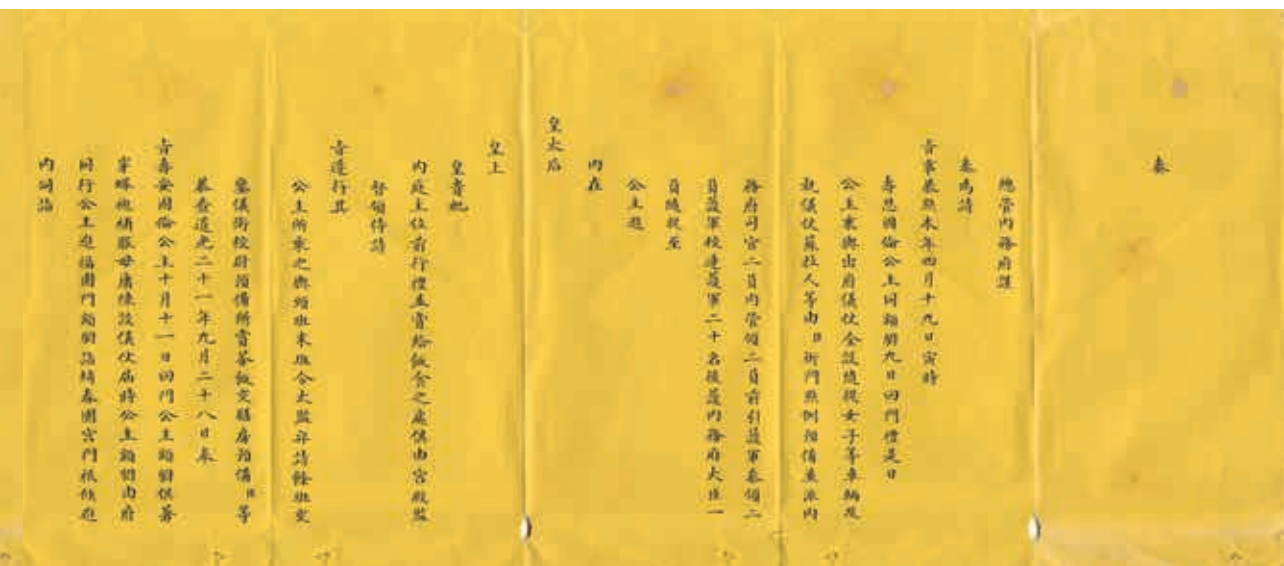 奏
總管內務府謹
奏為請
旨事恭照本年四月十九日寅時
壽恩固倫公主同額駙九日回門禮是日
公主乘輿出府儀仗全設隨從女子等車輛及
執儀仗蘇拉人等由臣衙門照例預備並派內
務府司官二員內管領二員前引護軍參領二
員護軍校達護軍二十名後護內務府大臣一
員隨從至
公主進
內在
皇太后
皇上
皇貴妃
內庭主位前行禮並賞給飯食之處俱由宮殿監
督領侍請
旨遵行其
公主所乘之輿頭班末班令太監舁請餘班交
鑾儀衛校尉預備所賞茶飯交膳房預備臣等
恭查道光二十一年九月二十八日奉
旨壽安固倫公主十月十一日回門公主額駙俱著
穿蟒袍補服毋庸陳設儀仗屆時公主額駙由府
同行公主進福園門額駙詣綺春園宮門祗候進
內同詣